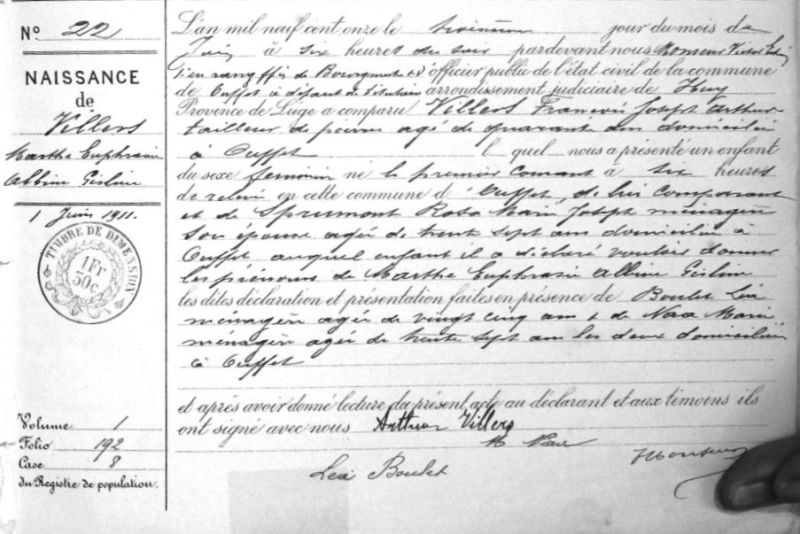 No 22
NAISSANCE
de
Villers
Marthe Euphrasie
Albine Gislaine
1 Juin 1911.
TIMBRE DE DIMENSION
1 Fr
30 c
Volume 1
Folio 192
Case 8
du Registre de population.
L'an mil neuf cent onze le troisième jour du mois de
Juin à six heures du soir pardevant nous Monseur Victor
Echevin ff de Bourgmestre officier public de l'état civil de la commune
de Ouffet à défaut de titulaire arrondissement judiciaire de Huy
Province de Liège a comparu Villers François Joseph Arthur
tailleur de pierre agé de quarante ans domicilié
à Ouffet lequel nous a présenté un enfant
du sexe féminin né le premier courant à six heures
de relevée en cette commune d'Ouffet, de lui comparant
et de Sprumont Rosa Marie Joseph ménagère
son épouse agée de trente sept ans domiciliée à
Ouffet auquel enfant il a déclaré vouloir donner
les prénoms de Marthe Euphrasie Albine Gislaine
les dites déclaration et présentation faites en présence de Boulet Léa
ménagère agée de vingt cinq ans & de Marie
ménagère agée de trente sept ans les deux domiciliées
à Ouffet
et après avoir donné lecture du présent acte au déclarant et aux témoins ils
ont signé avec nous Arthur Villers
Léa Boulet